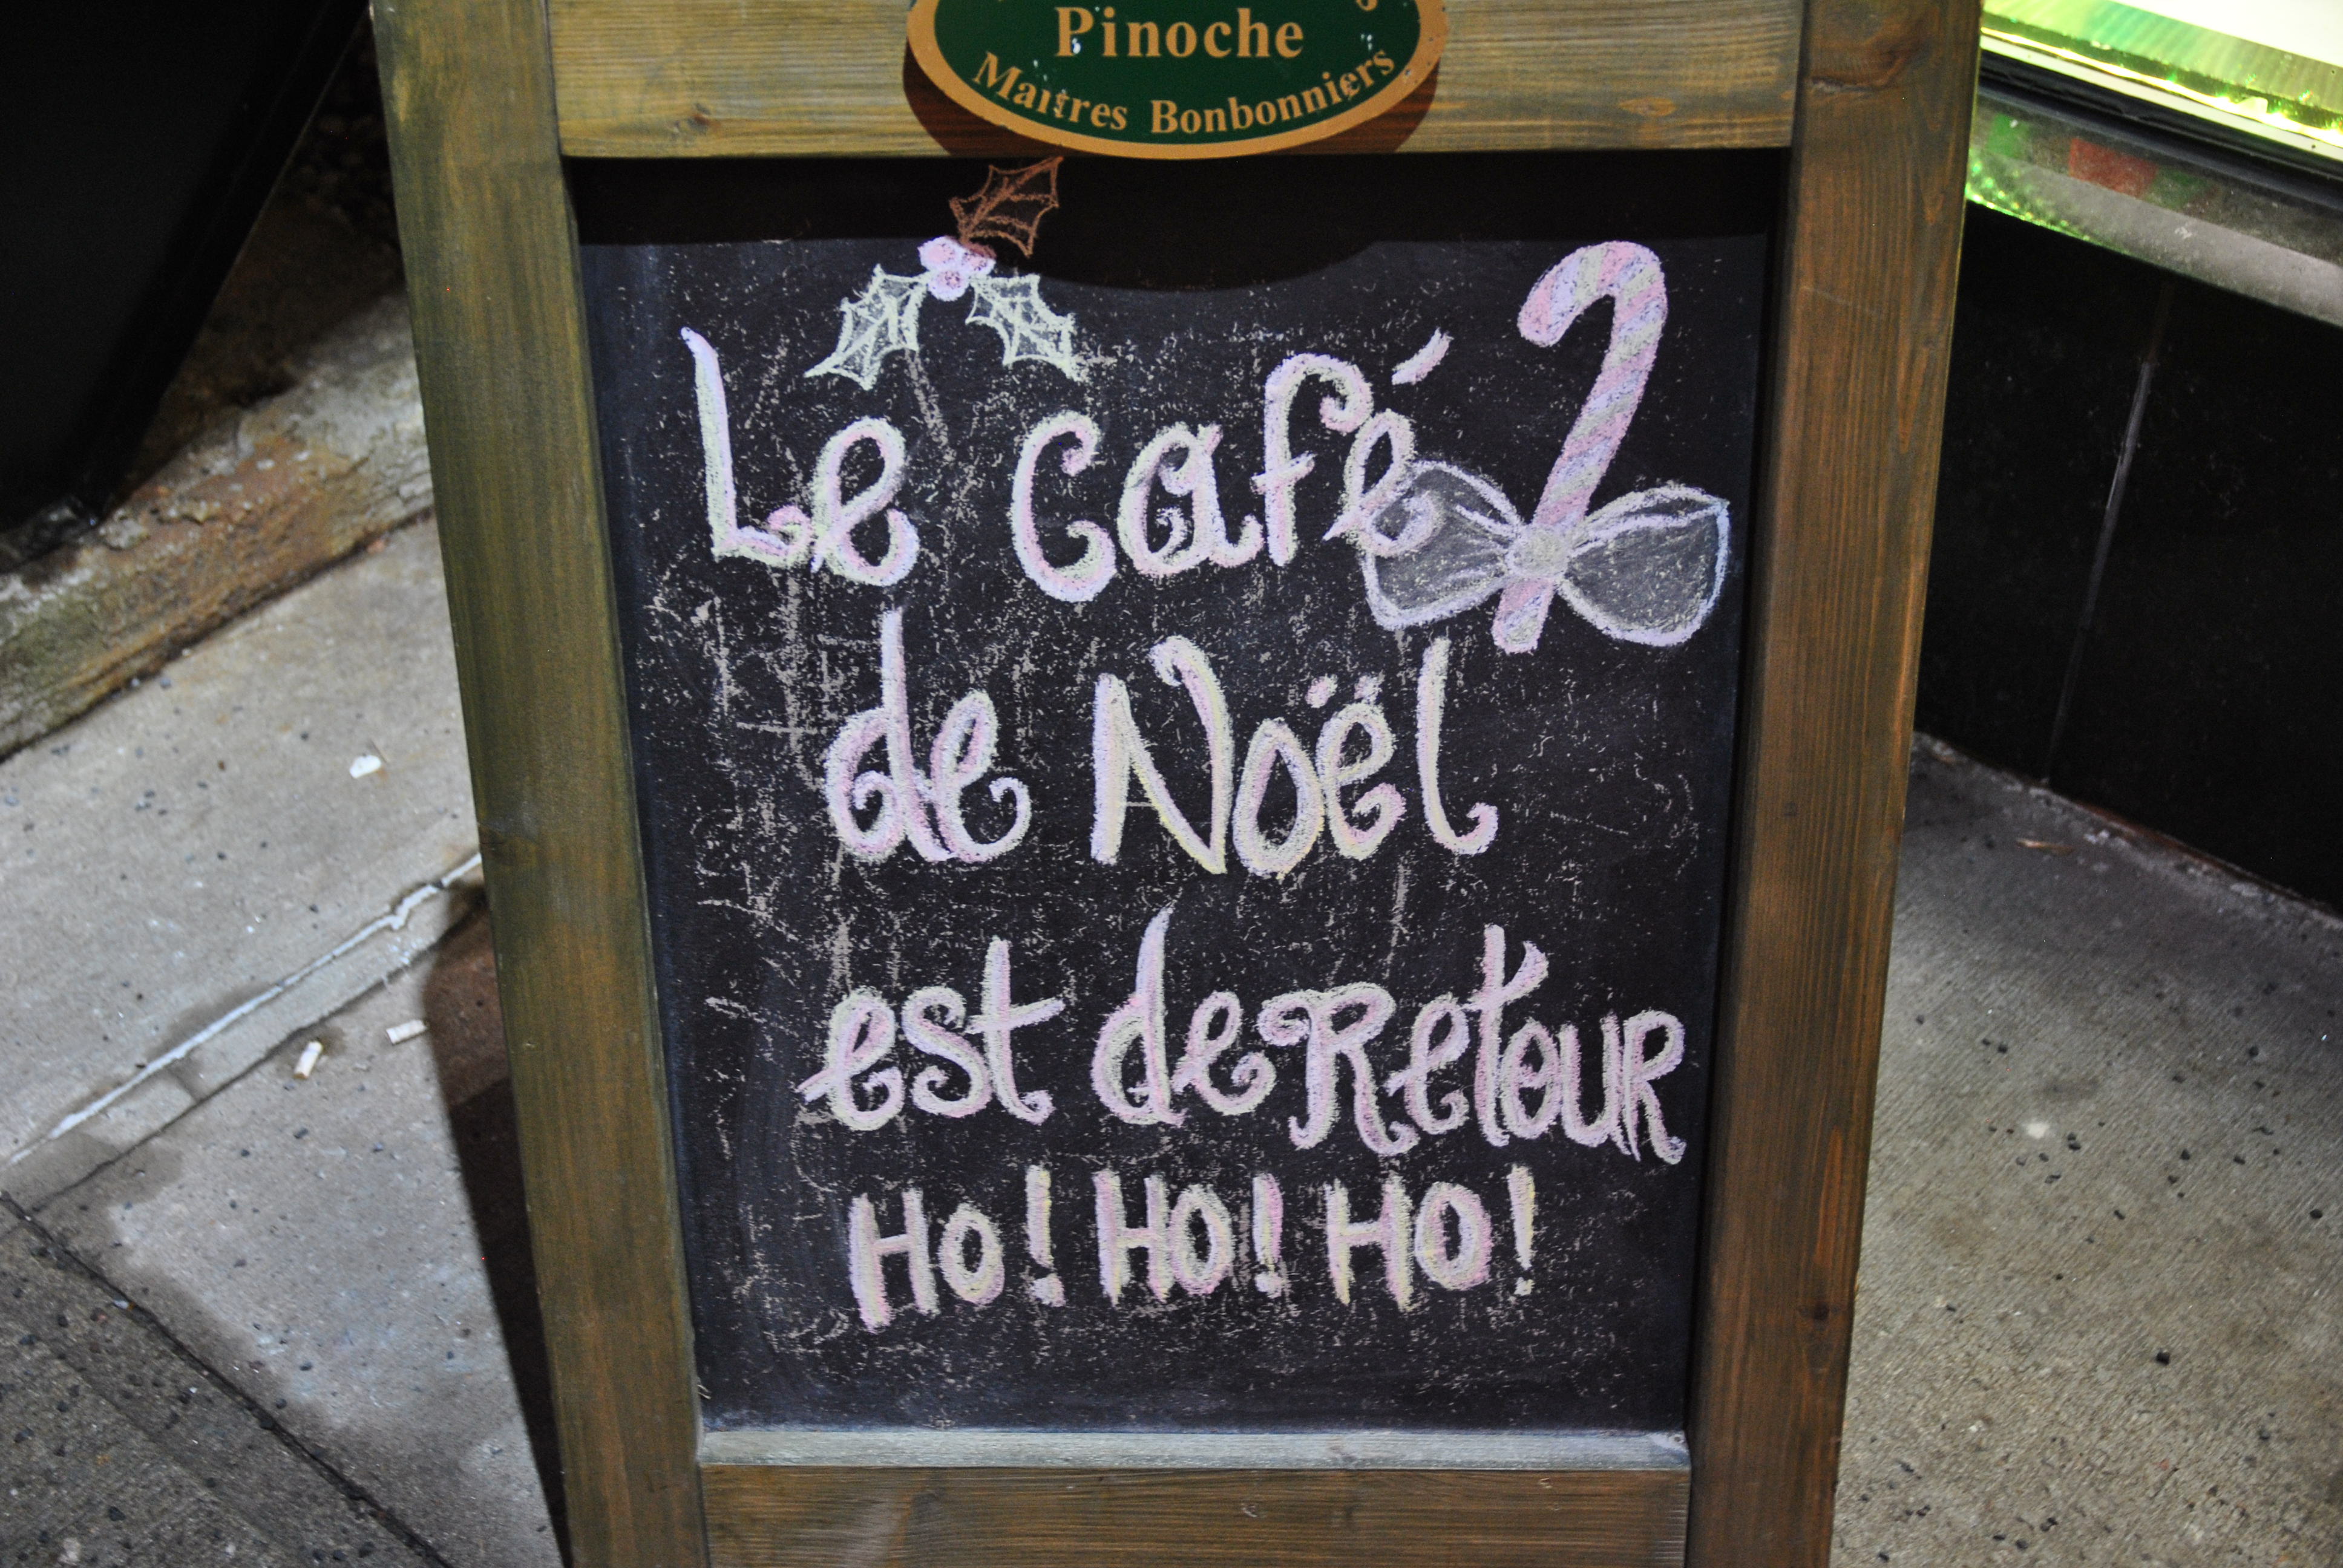 Pinoche
Maitres Bonbonniers
Le café
de Noël
est de Retour
Ho! Ho! Ho!